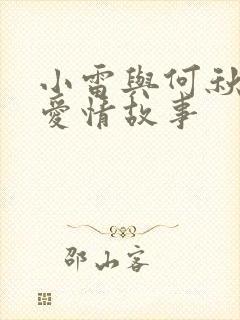 小雷與何秋
愛情故事
邵山客